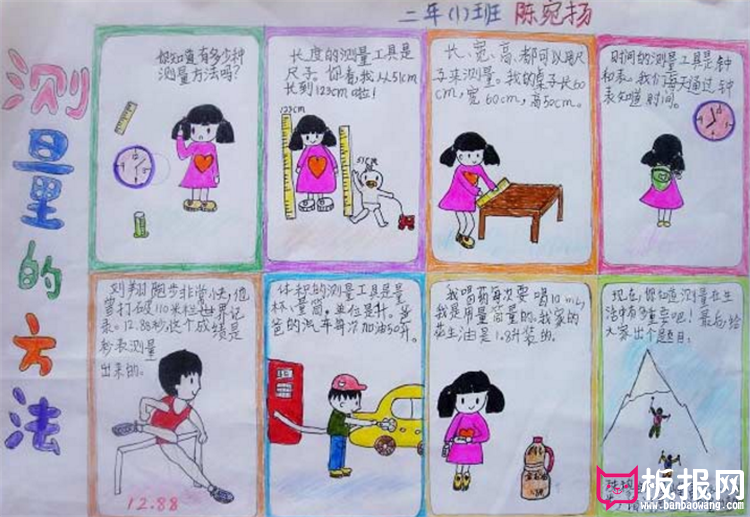 二年(1)班 陈宛扬
测量的方法
你知道有多少种
测量方法吗?
长度的测量工具是
尺子。你看,我从51cm
长到123cm啦!
123cm
51cm
长、宽、高,都可以用尺
子来测量。我的桌子长60
cm,宽60cm,高50cm。
时间的测量工具是钟
和表。我们每天通过钟
表知道时间。
刘翔跑步非常快,他
曾打破110米栏世界记
录。12.88秒,这个成绩是
秒表测量
出来的。
12.88
体积的测量工具是量
杯、量筒,单位是升。爸
爸的汽车每次加油50升。
我喝药每次要喝10mL,
我是用量筒量的。我家的
花生油是1.8升装的。
现在,你知道测量在生
活中有多重要吧!最后,给
大家出个题目:
板报网
www.banbaowang.com